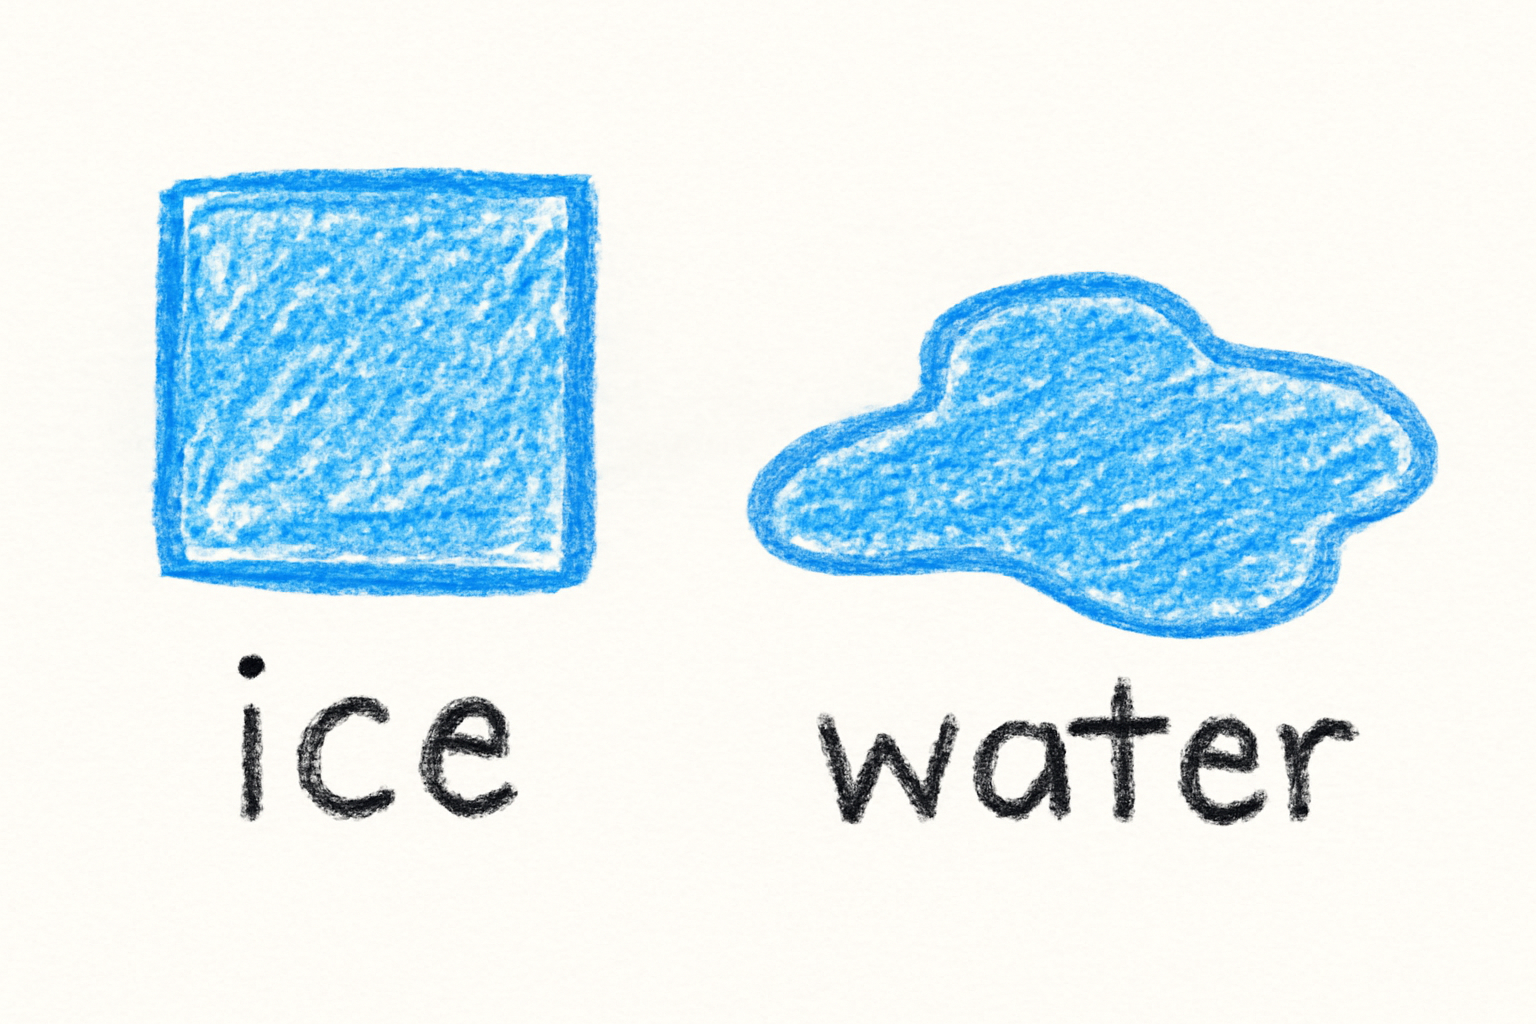 ice water